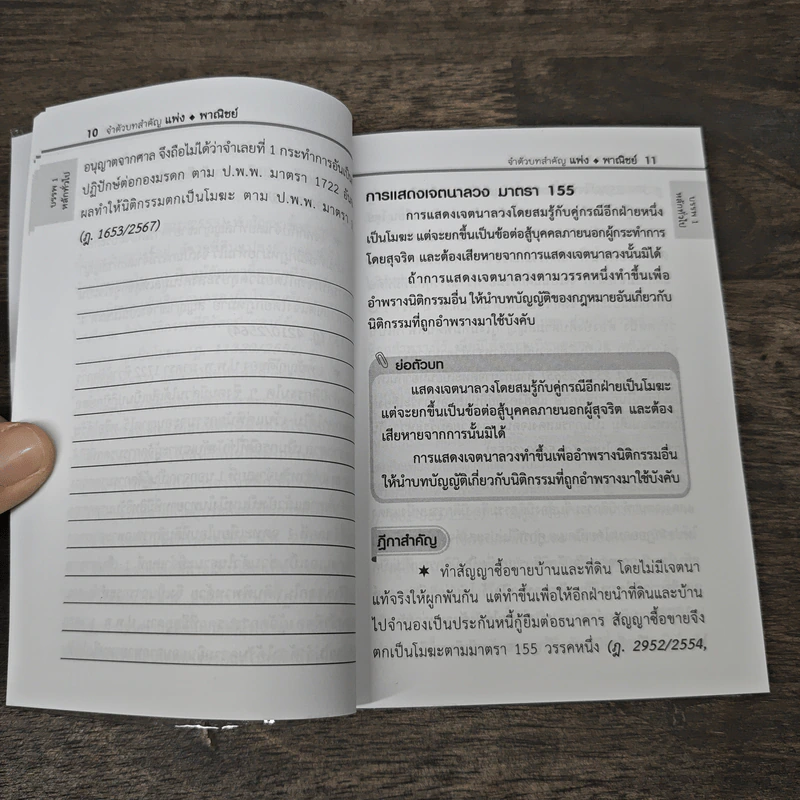 10 จำตัวบทสำคัญ แพ่ง ◆ พาณิชย์
บรรพ 1
หลักทั่วไป
อนุญาตจากศาล จึงถือไม่ได้ว่าจำเลยที่ 1 กระทำการอันเป็น
ปฏิปักษ์ต่อกองมรดก ตาม ป.พ.พ. มาตรา 1722 อัน
ผลทำให้นิติกรรมตกเป็นโมฆะ ตาม ป.พ.พ. มาตรา
(ฎ. 1653/2567)
จำตัวบทสำคัญ แพ่ง ◆ พาณิชย์ 11
บรรพ 1
หลักทั่วไป
การแสดงเจตนาลวง มาตรา 155
การแสดงเจตนาลวงโดยสมรู้กับคู่กรณีอีกฝ่ายหนึ่ง
เป็นโมฆะ แต่จะยกขึ้นเป็นข้อต่อสู้บุคคลภายนอกผู้กระทำการ
โดยสุจริต และต้องเสียหายจากการแสดงเจตนาลวงนั้นมิได้
ถ้าการแสดงเจตนาลวงตามวรรคหนึ่งทำขึ้นเพื่อ
อำพรางนิติกรรมอื่น ให้นำบทบัญญัติของกฎหมายอันเกี่ยวกับ
นิติกรรมที่ถูกอำพรางมาใช้บังคับ
ย่อตัวบท
แสดงเจตนาลวงโดยสมรู้กับคู่กรณีอีกฝ่ายเป็นโมฆะ
แต่จะยกขึ้นเป็นข้อต่อสู้บุคคลภายนอกผู้สุจริต และต้อง
เสียหายจากการนั้นมิได้
การแสดงเจตนาลวงทำขึ้นเพื่ออำพรางนิติกรรมอื่น
ให้นำบทบัญญัติเกี่ยวกับนิติกรรมที่ถูกอำพรางมาใช้บังคับ
ฎีกาสำคัญ
★ ทำสัญญาซื้อขายบ้านและที่ดิน โดยไม่มีเจตนา
แท้จริงให้ผูกพันกัน แต่ทำขึ้นเพื่อให้อีกฝ่ายนำที่ดินและบ้าน
ไปจำนองเป็นประกันหนี้กู้ยืมต่อธนาคาร สัญญาซื้อขายจึง
ตกเป็นโมฆะตามมาตรา 155 วรรคหนึ่ง (ฎ. 2952/2554,